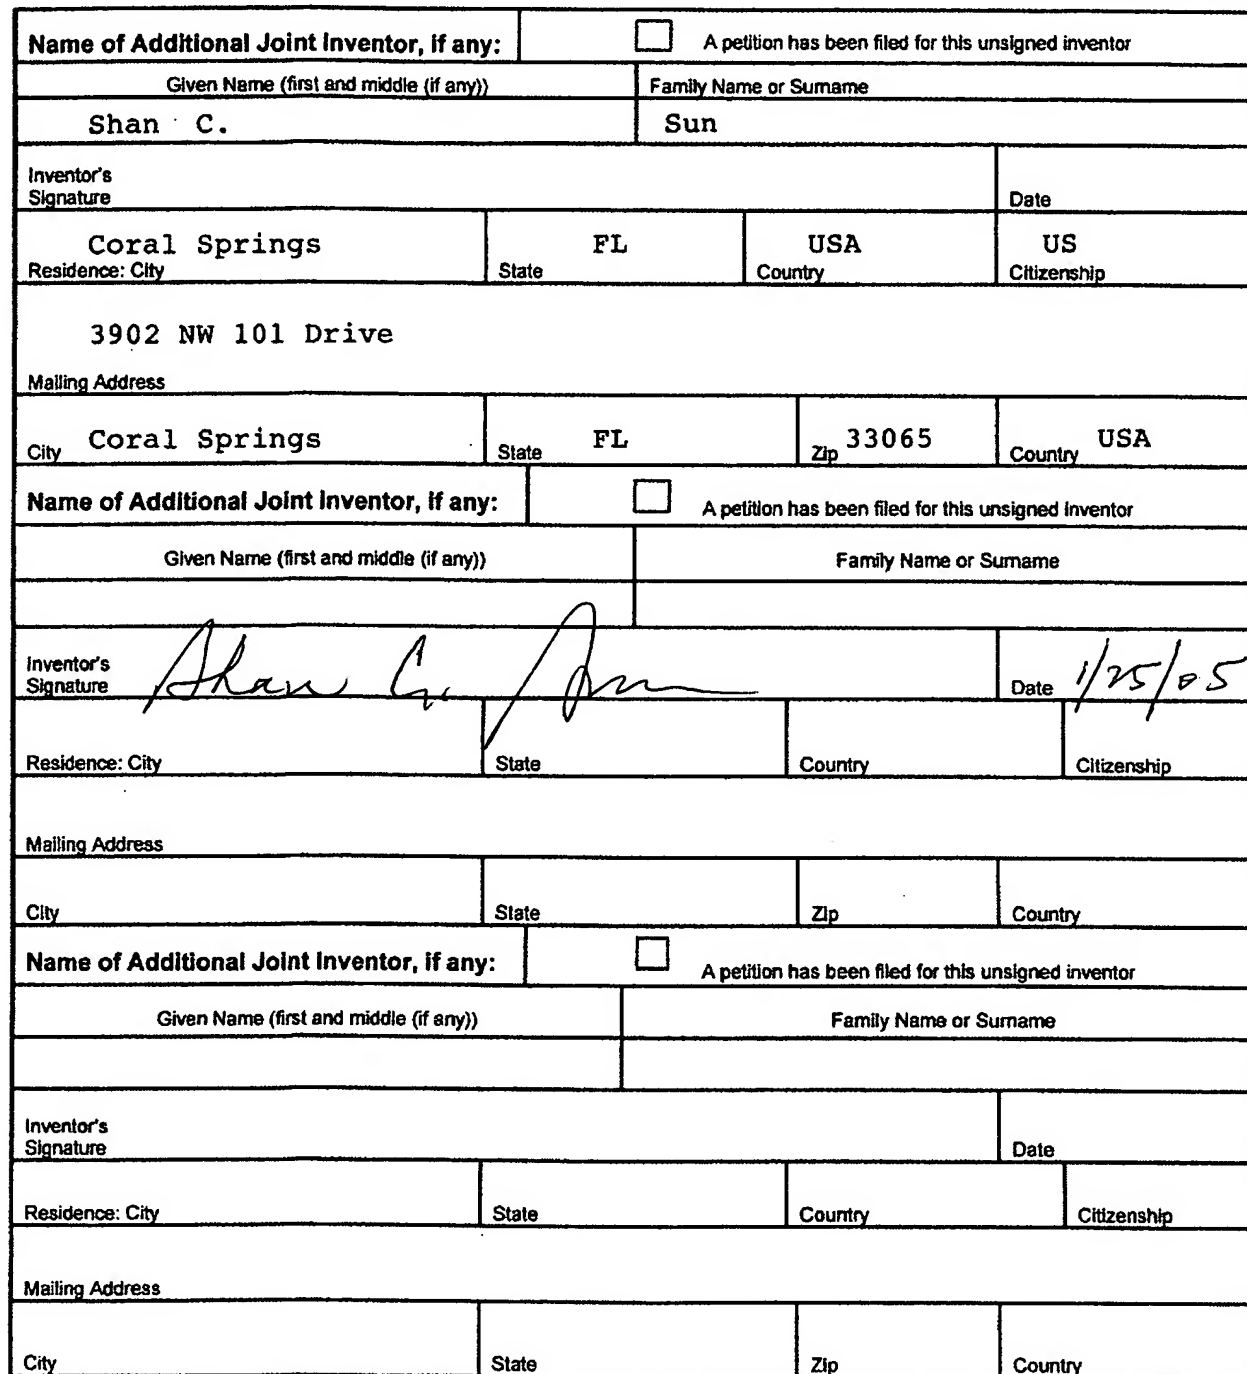 Name of Additional Joint Inventor, if any: A petition has been filed for this unsigned inventor
Given Name (first and middle (if any)) Family Name or Surname
Shan C. Sun
Inventor's
Signature Date
Coral Springs FL USA US
Residence: City State Country Citizenship
3902 NW 101 Drive
Mailing Address
City Coral Springs State FL Zip 33065 Country USA
Name of Additional Joint Inventor, if any: A petition has been filed for this unsigned inventor
Given Name (first and middle (if any)) Family Name or Surname
Inventor's
Signature Shan C. Sun Date 1/25/05
Residence: City State Country Citizenship
Mailing Address
City State Zip Country
Name of Additional Joint Inventor, if any: A petition has been filed for this unsigned inventor
Given Name (first and middle (if any)) Family Name or Surname
Inventor's
Signature Date
Residence: City State Country Citizenship
Mailing Address
City State Zip Country